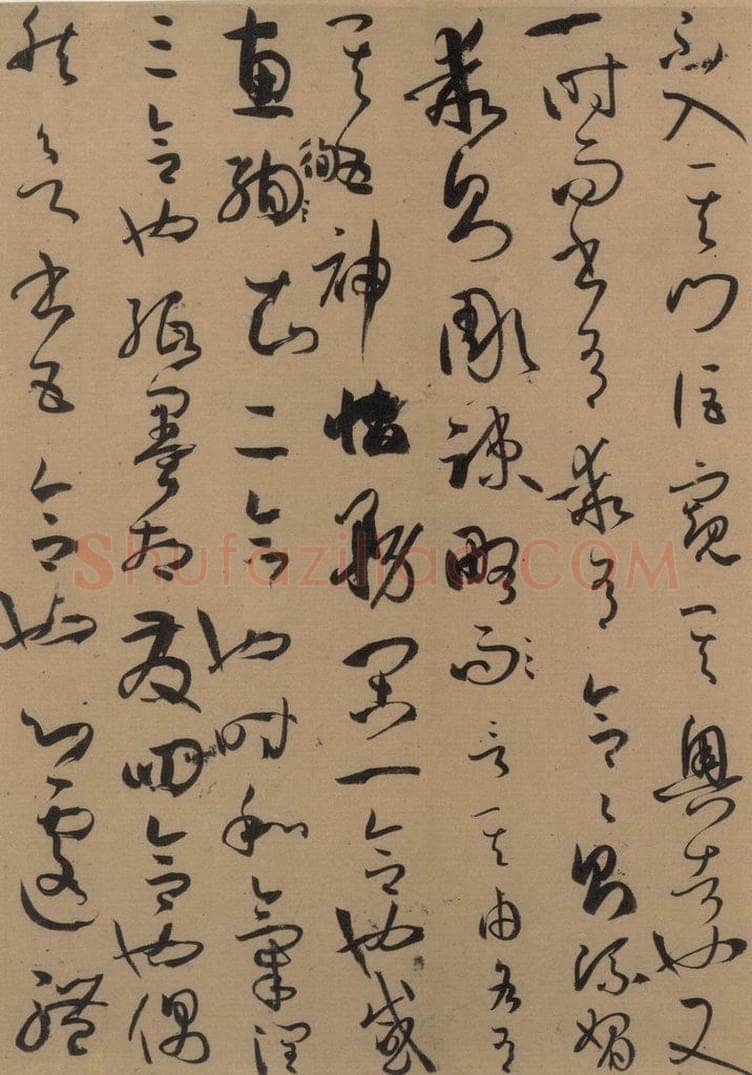 不入其門詎窺其奧者也又
一時而書有乖有合合則流媚
乖則彫疎略而言其由各有
其五神怡務閑一合也感
惠徇知二合也時和氣潤
三合也紙墨相發四合也偶
然欲書五合也心遽體
Shufaziliao.COM